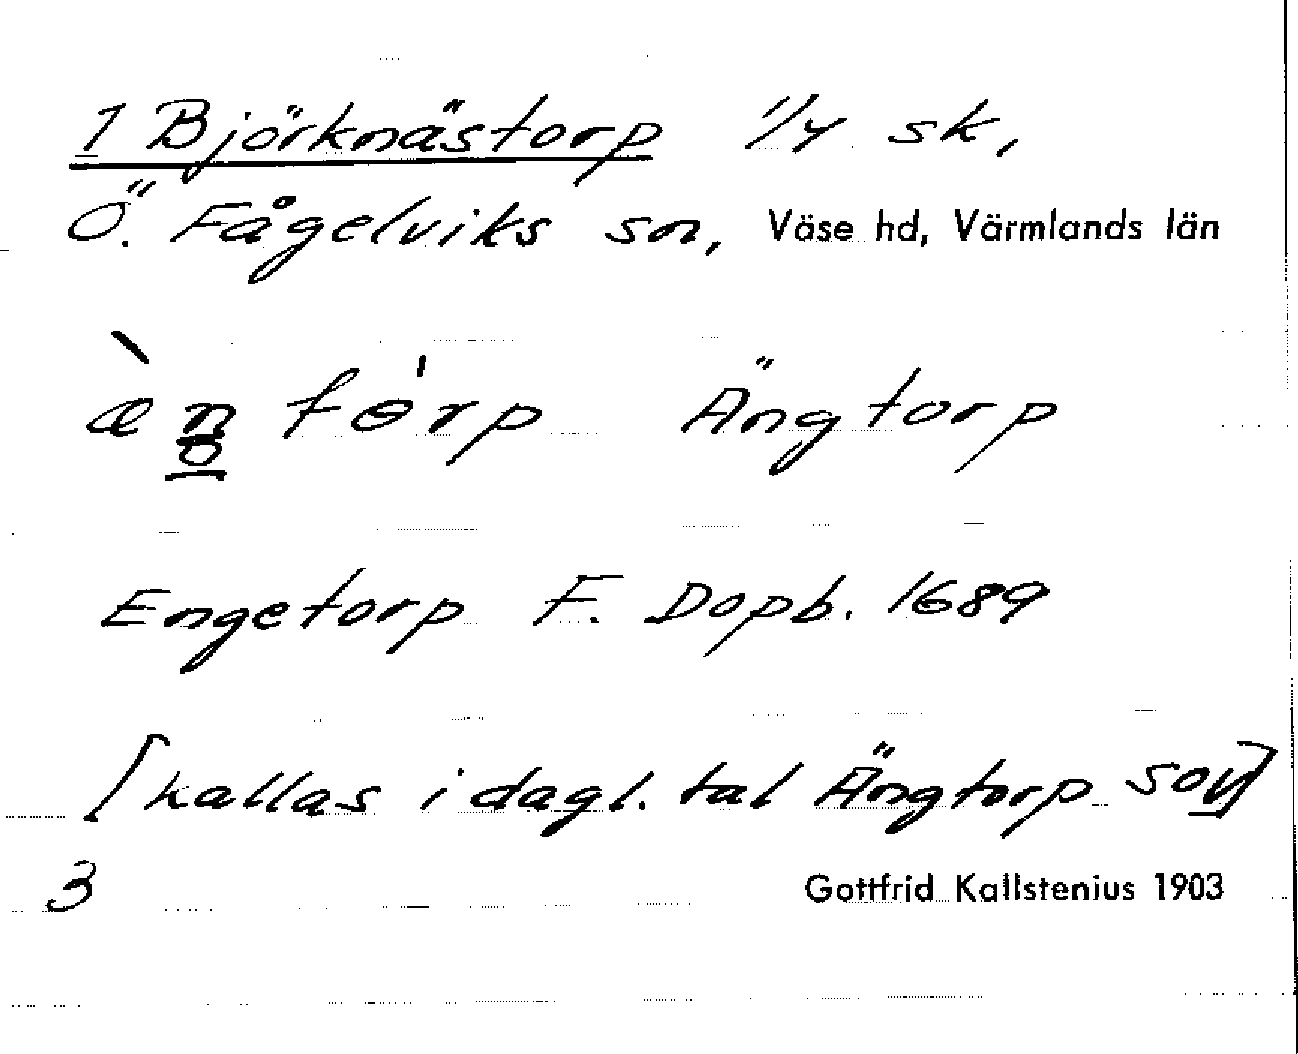 1 Björknästorp 1/4 sk,
Ö. Fågelviks sn, Väse hd, Värmlands län
torp Ängtorp
Engetorp F. Dopb. 1689
[kallas i dagl. tal Ängtorp
3 Gottfrid Kallstenius 1903